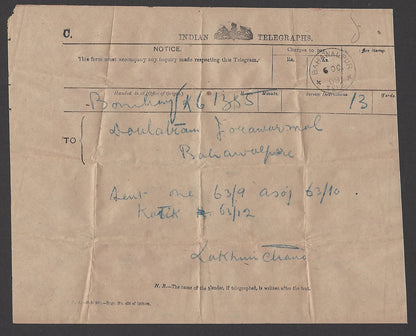 C. INDIAN TELEGRAPHS.
NOTICE.
This form must accompany any inquiry made respecting this Telegram.
Charges to pay.
Rs. As.
BAHAWALPUR
Handed in at (Office of Origin).
Service Instructions
Words.
Bombay X6 1355 13
TO Doulatram Jorawarmal
Bahawalpore
Sent one 63/9 asoj 63/10
Katik 63/12
Lakhmi Chand
N. B.—The name of the Sender, if telegraphed, is written after the text.